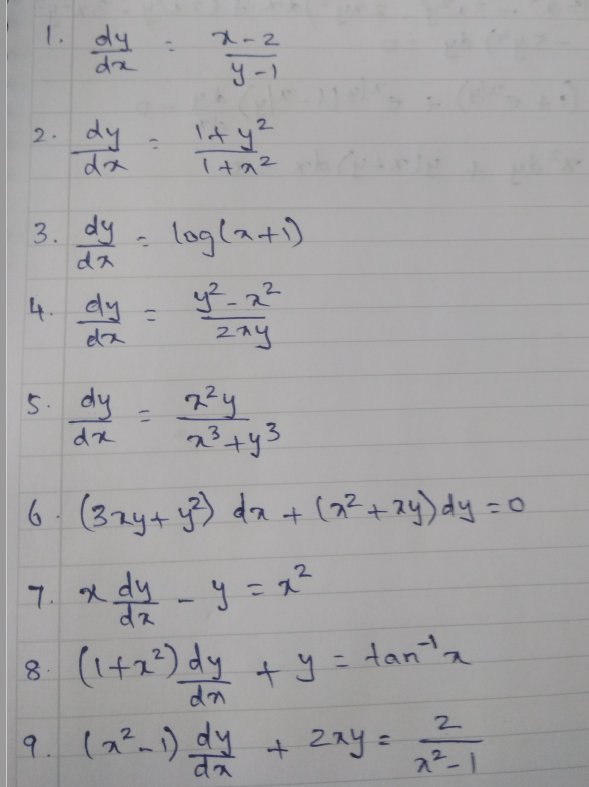 1. dy/dx = (x-2)/(y-1)
2. dy/dx = (1+y²)/(1+x²)
3. dy/dx = log(x+1)
4. dy/dx = (y²-x²)/(2xy)
5. dy/dx = (x²y)/(x³+y³)
6. (3xy+y²) dx + (x²+xy)dy = 0
7. x dy/dx - y = x²
8. (1+x²) dy/dx + y = tan⁻¹x
9. (x²-1) dy/dx + 2xy = 2/(x²-1)